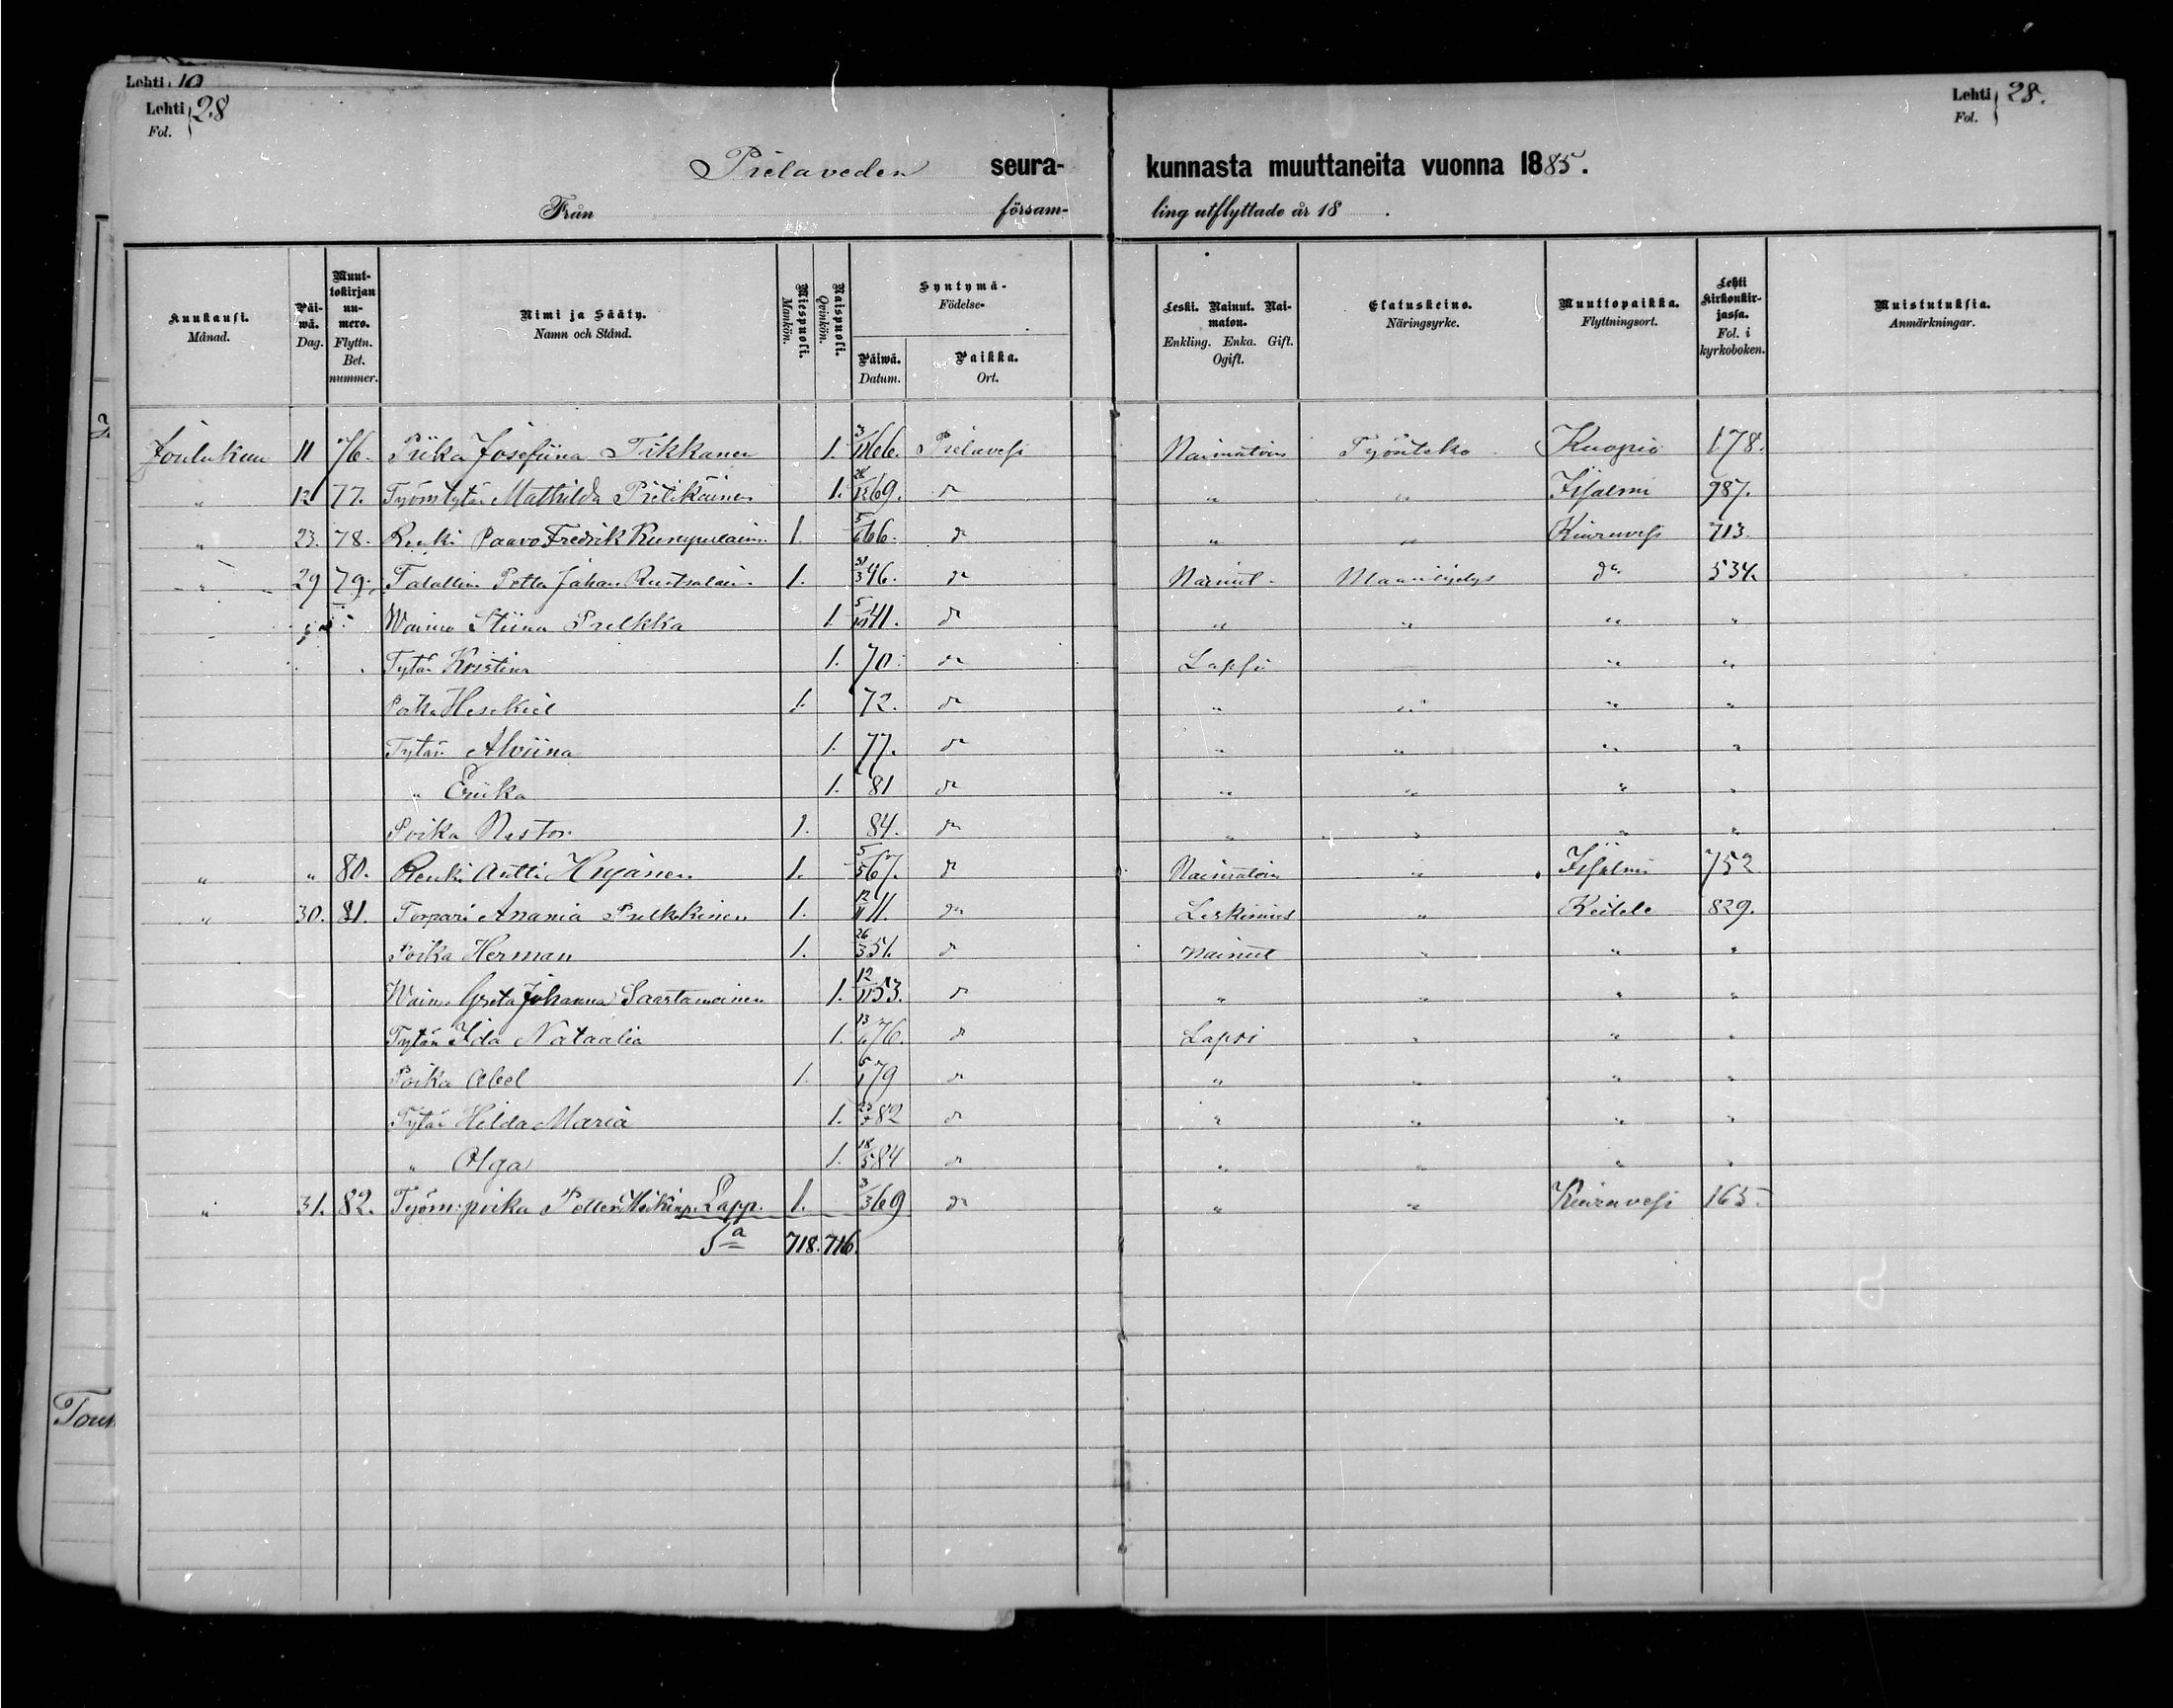 Lehti 19
Lehti 28
Fol.
Lehti 28.
Fol.
Pielaveden seura- kunnasta muuttaneita vuonna 1885.
Från försam- ling utflyttade år 18 .
Kuukausi. Månad.
Päi-wä. Dag.
Muut-tokirjan nu-mero. Flyttn. Bet. nummer.
Nimi ja Sääty. Namn och Stånd.
Miespuoli. Mankön.
Naispuoli. Qvinkön.
Syntymä- Födelse-
Päiwä. Datum.
Paikka. Ort.
Leski. Nainut. Nai-maton. Enkling. Enka. Gift. Ogift.
Elatuskeino. Näringsyrke.
Muuttopaikka. Flyttningsort.
Lehti kirkonkir-jassa. Fol. i kyrkoboken.
Muistutuksia. Anmärkningar.
Joulukuu 11 76. Piika Josefiina Tikkanen 1. 3/11 66. Pielavesi Naimatoin Työnteko Kuopio 178.
" 12 77. Työm tytär Mathilda Pietikäinen 1. 69. do " " Iisalmi 987.
" 23. 78. Renki Paavo Fredrik 1. 5/6 66. do " " Kiuruvesi 713.
" 29 79. Petter Johan Ruotsalain. 1. 46. do Nainut Maanviljelys do 534.
Waimo Stiina Pulkka 1. 5/10 41. do " " " "
Tytär Kristina 1. 70. do Lapsi " "
Poika Hesekiel 1. 72. do " " " "
Tytär Alviina 1. 77. do " " " "
" Eriika 1. 81 do " " " "
Poika Nestor 1. 84. do " " " "
" " 80. Renki Antti Hujanen 1. 5/5 67. do Naimatoin " Iisalmi 752
" 30. 81. Torpari Anania Pulkkinen 1. 12/11 11. do Leskimies " Keitele 829.
Poika Herman 1. 26/3 51. do Nainut " " "
Waimo Greta Johanna Saastamoinen 1. 12/11 53. do " " " "
Tytär Ida Nataalia 1. 13/6 76. do Lapsi " " "
Poika Abel 1. 79 do " " " "
Tytär Hilda Maria 1. 82 do " " " "
" Olga 1. 18/5 84 do " " " "
" 31. 82. Työm: poika Petter Heikinp. Lapp. 1. 3/3 69 do " " Kiuruvesi 165.
Sa 718. 716.
Touk